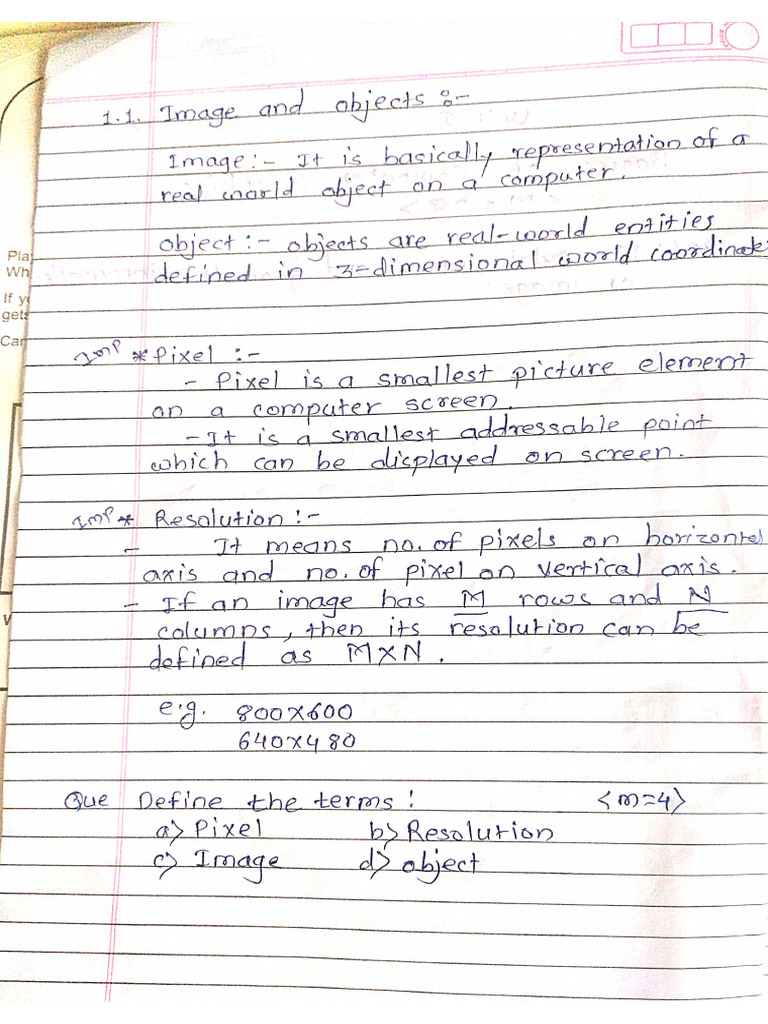 1.1. Image and objects :-
Image:- It is basically representation of a
real world object on a computer.
object:- objects are real-world entities
defined in 3-dimensional world coordinate
Pla
Wh
If y
gets
Can
Imp * Pixel :-
- Pixel is a smallest picture element
on a computer screen.
- It is a smallest addressable point
which can be displayed on screen.
Imp * Resolution :-
- It means no. of pixels on horizontal
axis and no. of pixel on vertical axis.
- If an image has M rows and N
columns, then its resolution can be
defined as MXN.
e.g. 800x600
640x480
Que Define the terms : <m=4>
a> Pixel b> Resolution
c> Image d> object